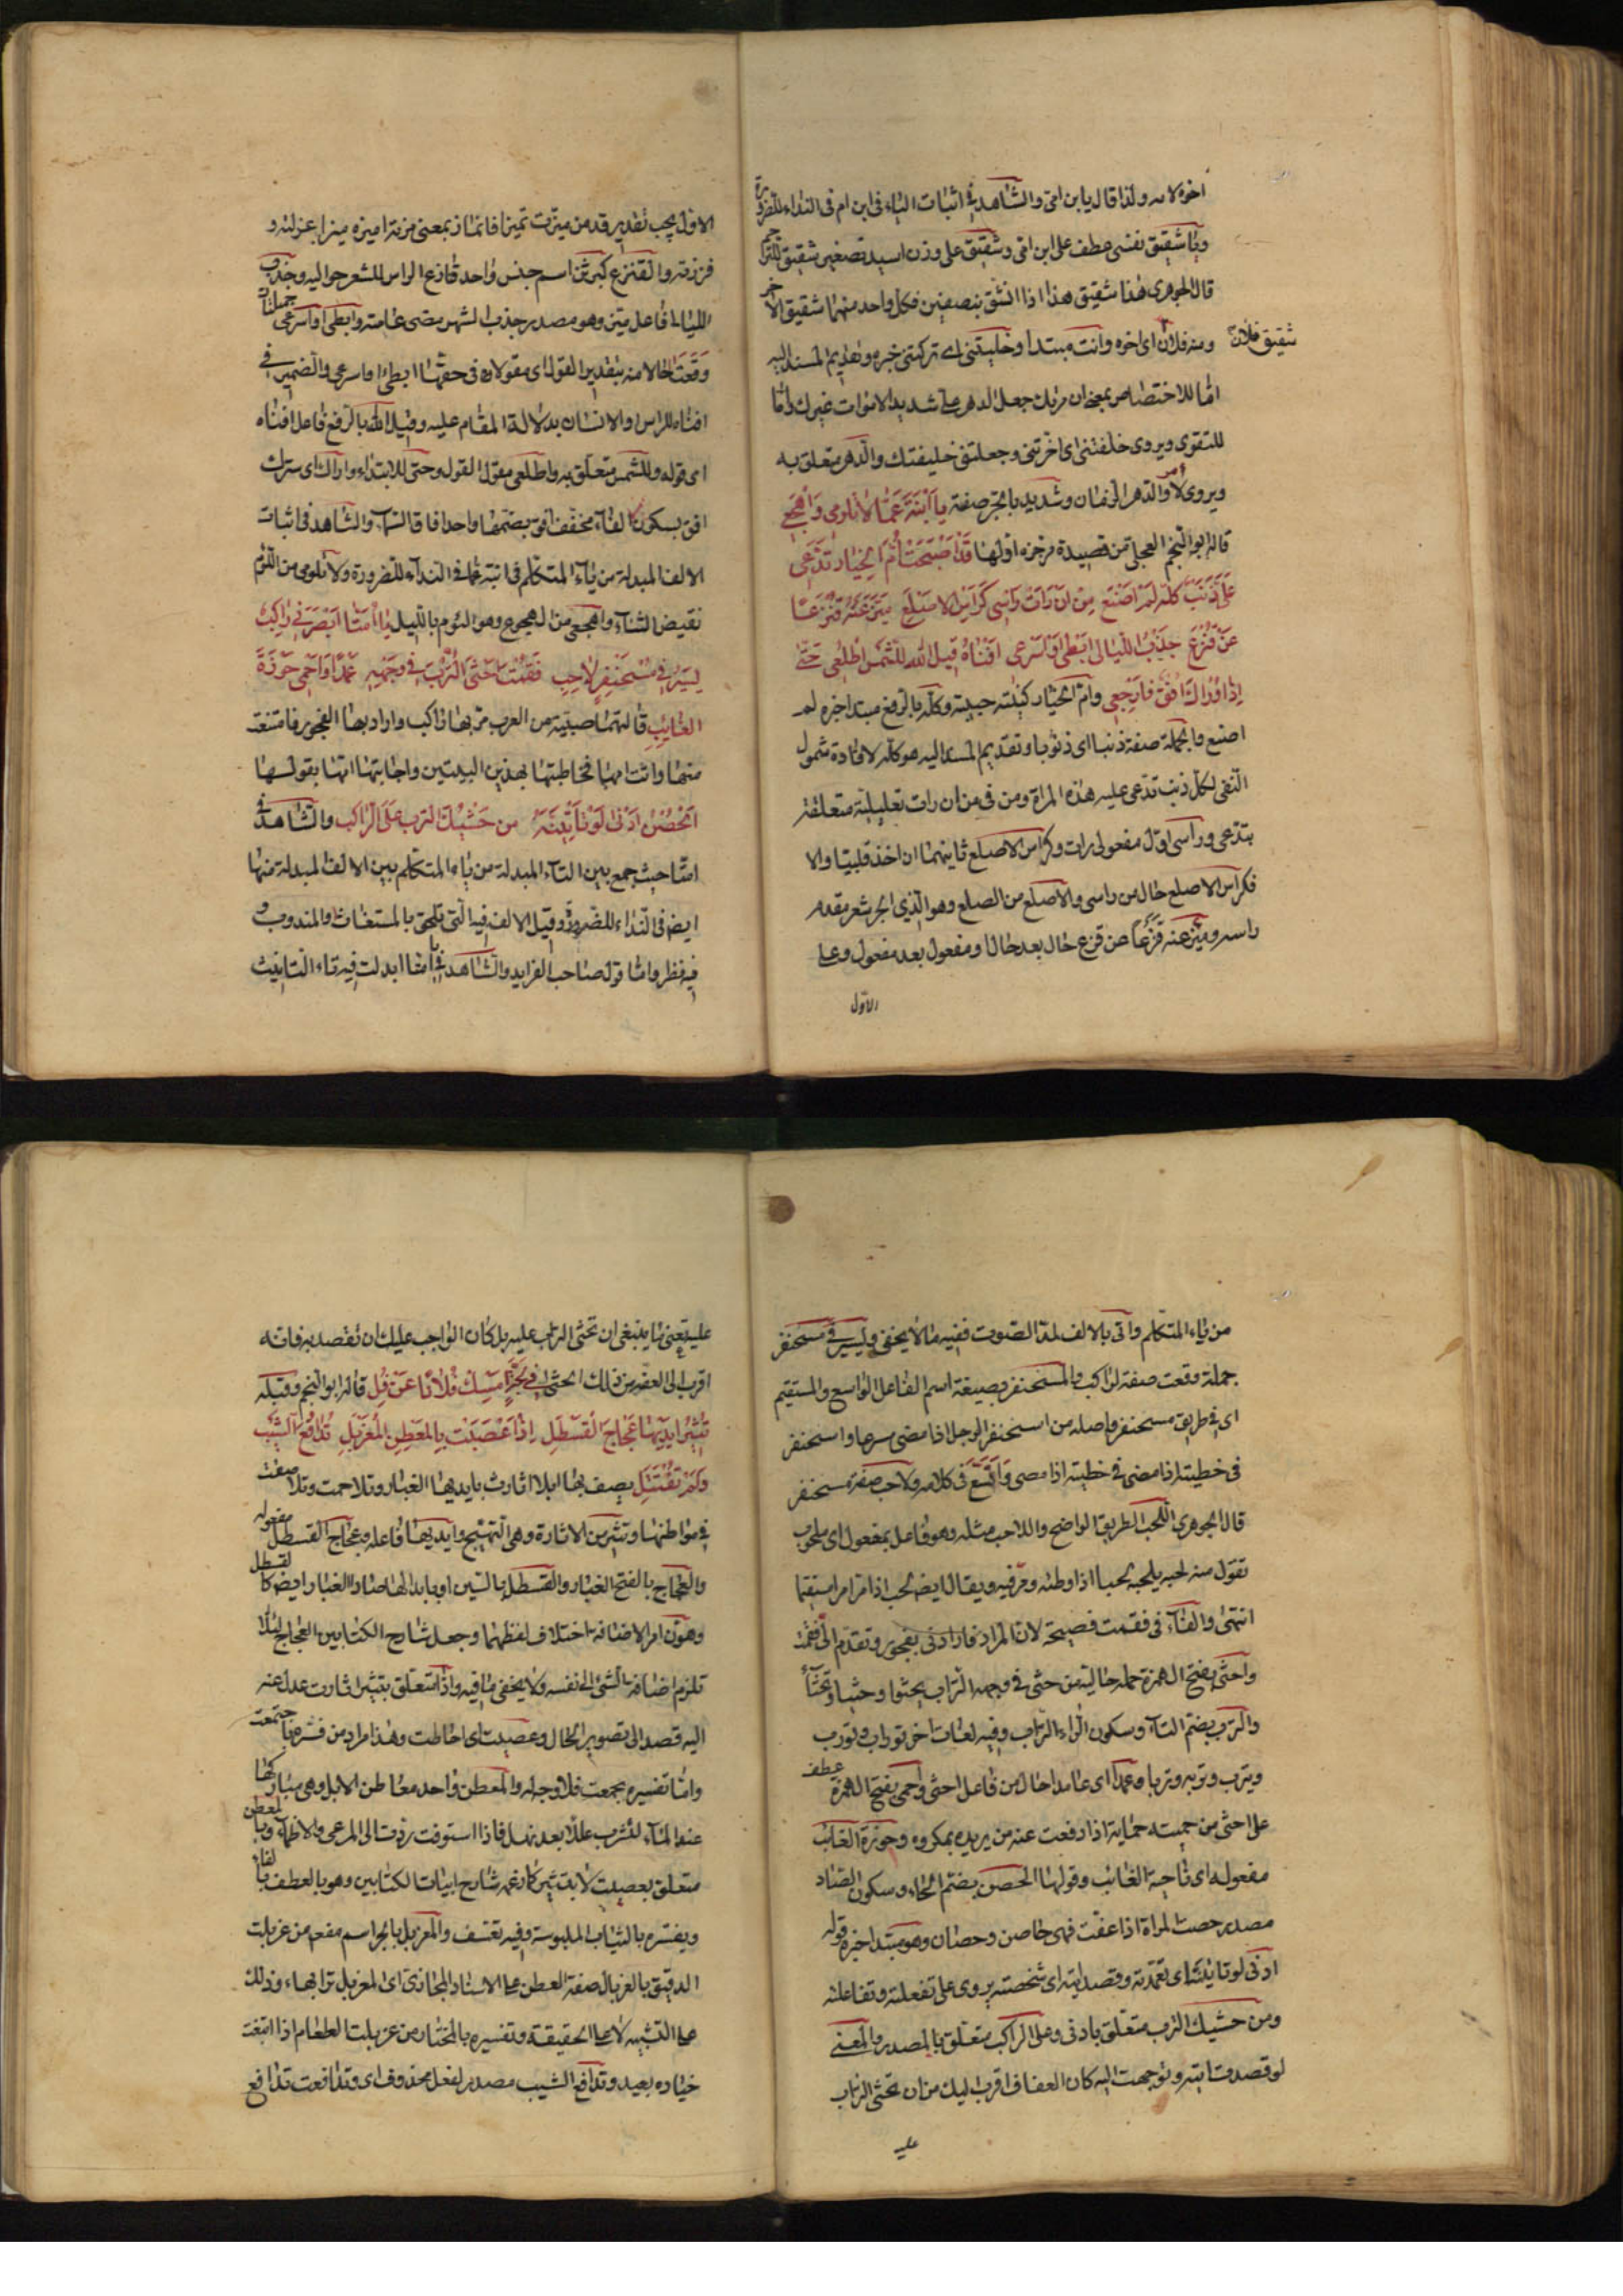 اخوه لامه ولذا قال يا بن امى والشاهد فى اثبات الياء فى ابن ام فى النداء للضرورة
ويا شقيق نفسى عطف على ابن امى وشقيق على وزن اسيد تصغير شقيق للترحم
قال الجوهرى هذا شقيق هذا اذا انشق بنصفين فكل واحد منهما شقيق الاخر
ومنه فلان شقيق فلان اى اخوه وانت مبتدا وخليتنى اى تركتنى خبره وتقديم المسند اليه
اما للاختصاص بمعنى ان مربك جعل الدهر على شديد لا موات غيرك واما
للتقوى ويروى خلفتنى اى اخرتنى وجعلتنى خليفتك والدهر متعلق به
ويروى لامر والدهر الزمان وشديد بالجر صفة يا ابنة عما لا تلومى واهجعى
قاله ابو النجم العجلى من قصيدة مرجزه اولها قد اصبحت ام الخيار تدعى
على ذنبا كله لم اصنع من ان رات راسى كراس الاصلع ميز عنه قنزعا
عن قنزع جذب الليالى ابطئى او اسرعى افناه قيل الله للشمس اطلعى حتى
اذا واراك افق فارجعى وام الخيار كنية حبيبته وكله بالرفع مبتدا خبره لم
اصنع والجملة صفة ذنبا اى ذنوبا وتقديم المسند اليه هو كله لافادة شمول
النفى لكل ذنب تدعى عليه هذه المراة ومن فى من ان رات تعليلية متعلقة
بتدعى وراسى اول مفعولى رات وكراس الاصلع ثانيهما ان اخذ قلبيا والا
فكراس الاصلع حال من راسى والاصلع من الصلع وهو الذى انحسر شعر مقدم
راسه وميز عنه قنزعا عن قنزع حال بعد حال او مفعول بعد مفعول وعلى
الاول
الاول يجب تقدير قد من ميزت تميزا فانماز بمعنى مزته اميزه ميزا عزلته و
فرزته والقنزع كبرثن اسم جنس واحد قنازع الراس للشعر حواليه وجذب
الليالى فاعل ميز وهو مصدر جذب الشهر مضى عامته وابطئى او اسرعى جملتان
وقعتا حالا منه بتقدير القول اى مقولا فى حقها ابطئى او اسرعى والضمير فى
افناه للراس والانسان بدلالة المقام عليه وقيل الله بالرفع فاعل افناه
اى قوله وللشمس متعلق به واطلعى مقول القول وحتى للابتداء واراك اى سترك
افق بسكون الفاء مخفف افق بضمها واحد افاق السماء والشاهد فى اثبات
الالف المبدلة من ياء المتكلم فى ابنة عما فى النداء للضرورة ولا تلومى من اللوم
نقيض الثناء واهجعى من الهجوع وهو النوم بالليل يا امتا ابصرنى راكب
يسير فى مسحنفر لاحب فقمت احثى الترب فى وجهه عمدا واحمى حوزة
الغايب قالتهما صبية من العرب مر بها راكب واراد بها الفجور فامتنعت
منها واتت امها فخاطبتها بهذين البيتين واجابتها امها بقولها
الحصن ادنى لو تايته من حثيك الترب على الراكب والشاهد فى
امتا حيث جمع بين التاء المبدلة من ياء المتكلم بين الالف المبدلة منها
ايضا فى النداء للضرورة وقيل الالف فيه التى تلحق بالمستغاث والمندوب و
فيه نظر واما قول صاحب الفرايد والشاهد فى يا امتا ابدلت فيه تاء التانيث
من ياء المتكلم واتى بالالف لمد الصوت ففيه ما لا يخفى ويسير فى مسحنفر
جملة وقعت صفة لراكب والمسحنفر بصيغة اسم الفاعل الواسع والمستقيم
اى فى طريق مسحنفر واصله من اسحنفر الرجل اذا مضى سرعا واسحنفر
فى خطبته اذا مضى فى خطبته اذا مضى واتسع فى كلامه ولاحب صفة مسحنفر
قال الجوهرى اللحب الطريق الواضح واللاحب مثله وهو فاعل بمفعول اى ملحوب
تقول منه لحبه يلحبه لحبا اذا وطئه ومر فيه ويقال ايضا لحب اذا مر امرا مستقيما
انتهى والفاء فى فقمت فصيحة لان المراد فارادنى بفجور وتقدم الى فقمت
واحثى بفتح الهمزة جملة حالية من حثى فى وجهه التراب يحثوا وحثيا وتحثاء
والترب بضم التاء وسكون الراء التراب وفيه لغات اخر توراب وتورب
وتيرب وتربة وتربا وعمدا اى عامدا حال من فاعل احثى واحمى بفتح الهمزة عطف
على احثى من حميته حماية اذا دفعت عنه من يريده بمكروه وحوزة الغائب
مفعوله اى ناحية الغائب وقولها الحصن بضم الحاء وسكون الصاد
مصدر حصنت المراة اذا عفت فهى حاصن وحصان وهو مبتدا خبره قوله
ادنى لو تايته اى تعمدته وقصدايته اى شخصته يروى على تفعلته وتفاعلته
ومن حثيك الترب متعلق بادنى وعلى الراكب متعلق بالمصدر والمعنى
لو قصدت ايته وتوجهت اليه كان العفاف اقرب اليك من ان تحثى التراب
عليه
عليه يعنى ما ينبغى ان تحثى التراب عليه بل كان الواجب عليك ان تقصد به فانه
اقرب الى العفة من ذلك الحثى فى لجة امسك فلانا عن فل قاله ابو النجم وقبله
تثير ايديها عجاج القسطل اذا عصبت بالمعطن المغربل تدافع الشيب
ولم تقتتل يصف بها ابلا اثارت بايديها الغبار وتلاحمت وتدافعت
فى مواطنها وتثير من الاثارة وهى التهييج وايديها فاعله وعجاج القسطل مفعوله
والعجاج بالفتح الغبار والقسطل بالسين او بابدالها صادا الغبار ايضا كالقسطل
وهون امر الاضافة اختلاف لفظهما وجعل شارح الكتابين العجاج لئلا
تلزم اضافة الشئ الى نفسه ولا يخفى ما فيه واذا متعلق بتثير اثارت عدل عنه
اليه قصدا الى تصوير الحال وعصبت اى احاطت وهذا مراد من فسره باجتمعت
واما تفسيره بجمعت فلا وجه له والمعطن واحد معاطن الابل وهى مباركها
عند الماء لتشرب عللا بعد نهل فاذا استوفت ردت الى المرعى والاظماء وبالمعطن
متعلق بعصبت لا بتثير كما زعمه شارح ابيات الكتابين وهو بالعطف بالفاء
ويفسره بالثياب الملبوسة وفيه تعسف والمغربل بالجر اسم مفعم من غربلت
الدقيق بالغربال صفة العطن على الاسناد المجازى اى المغربل ترابها وذلك
على التشبيه لا على الحقيقة وتفسيره بالمختار من غربلت الطعام اذا انتقيت
خياره بعيد وتدافع الشيب مصدر لفعل محذوف اى وتدافعت تدافع